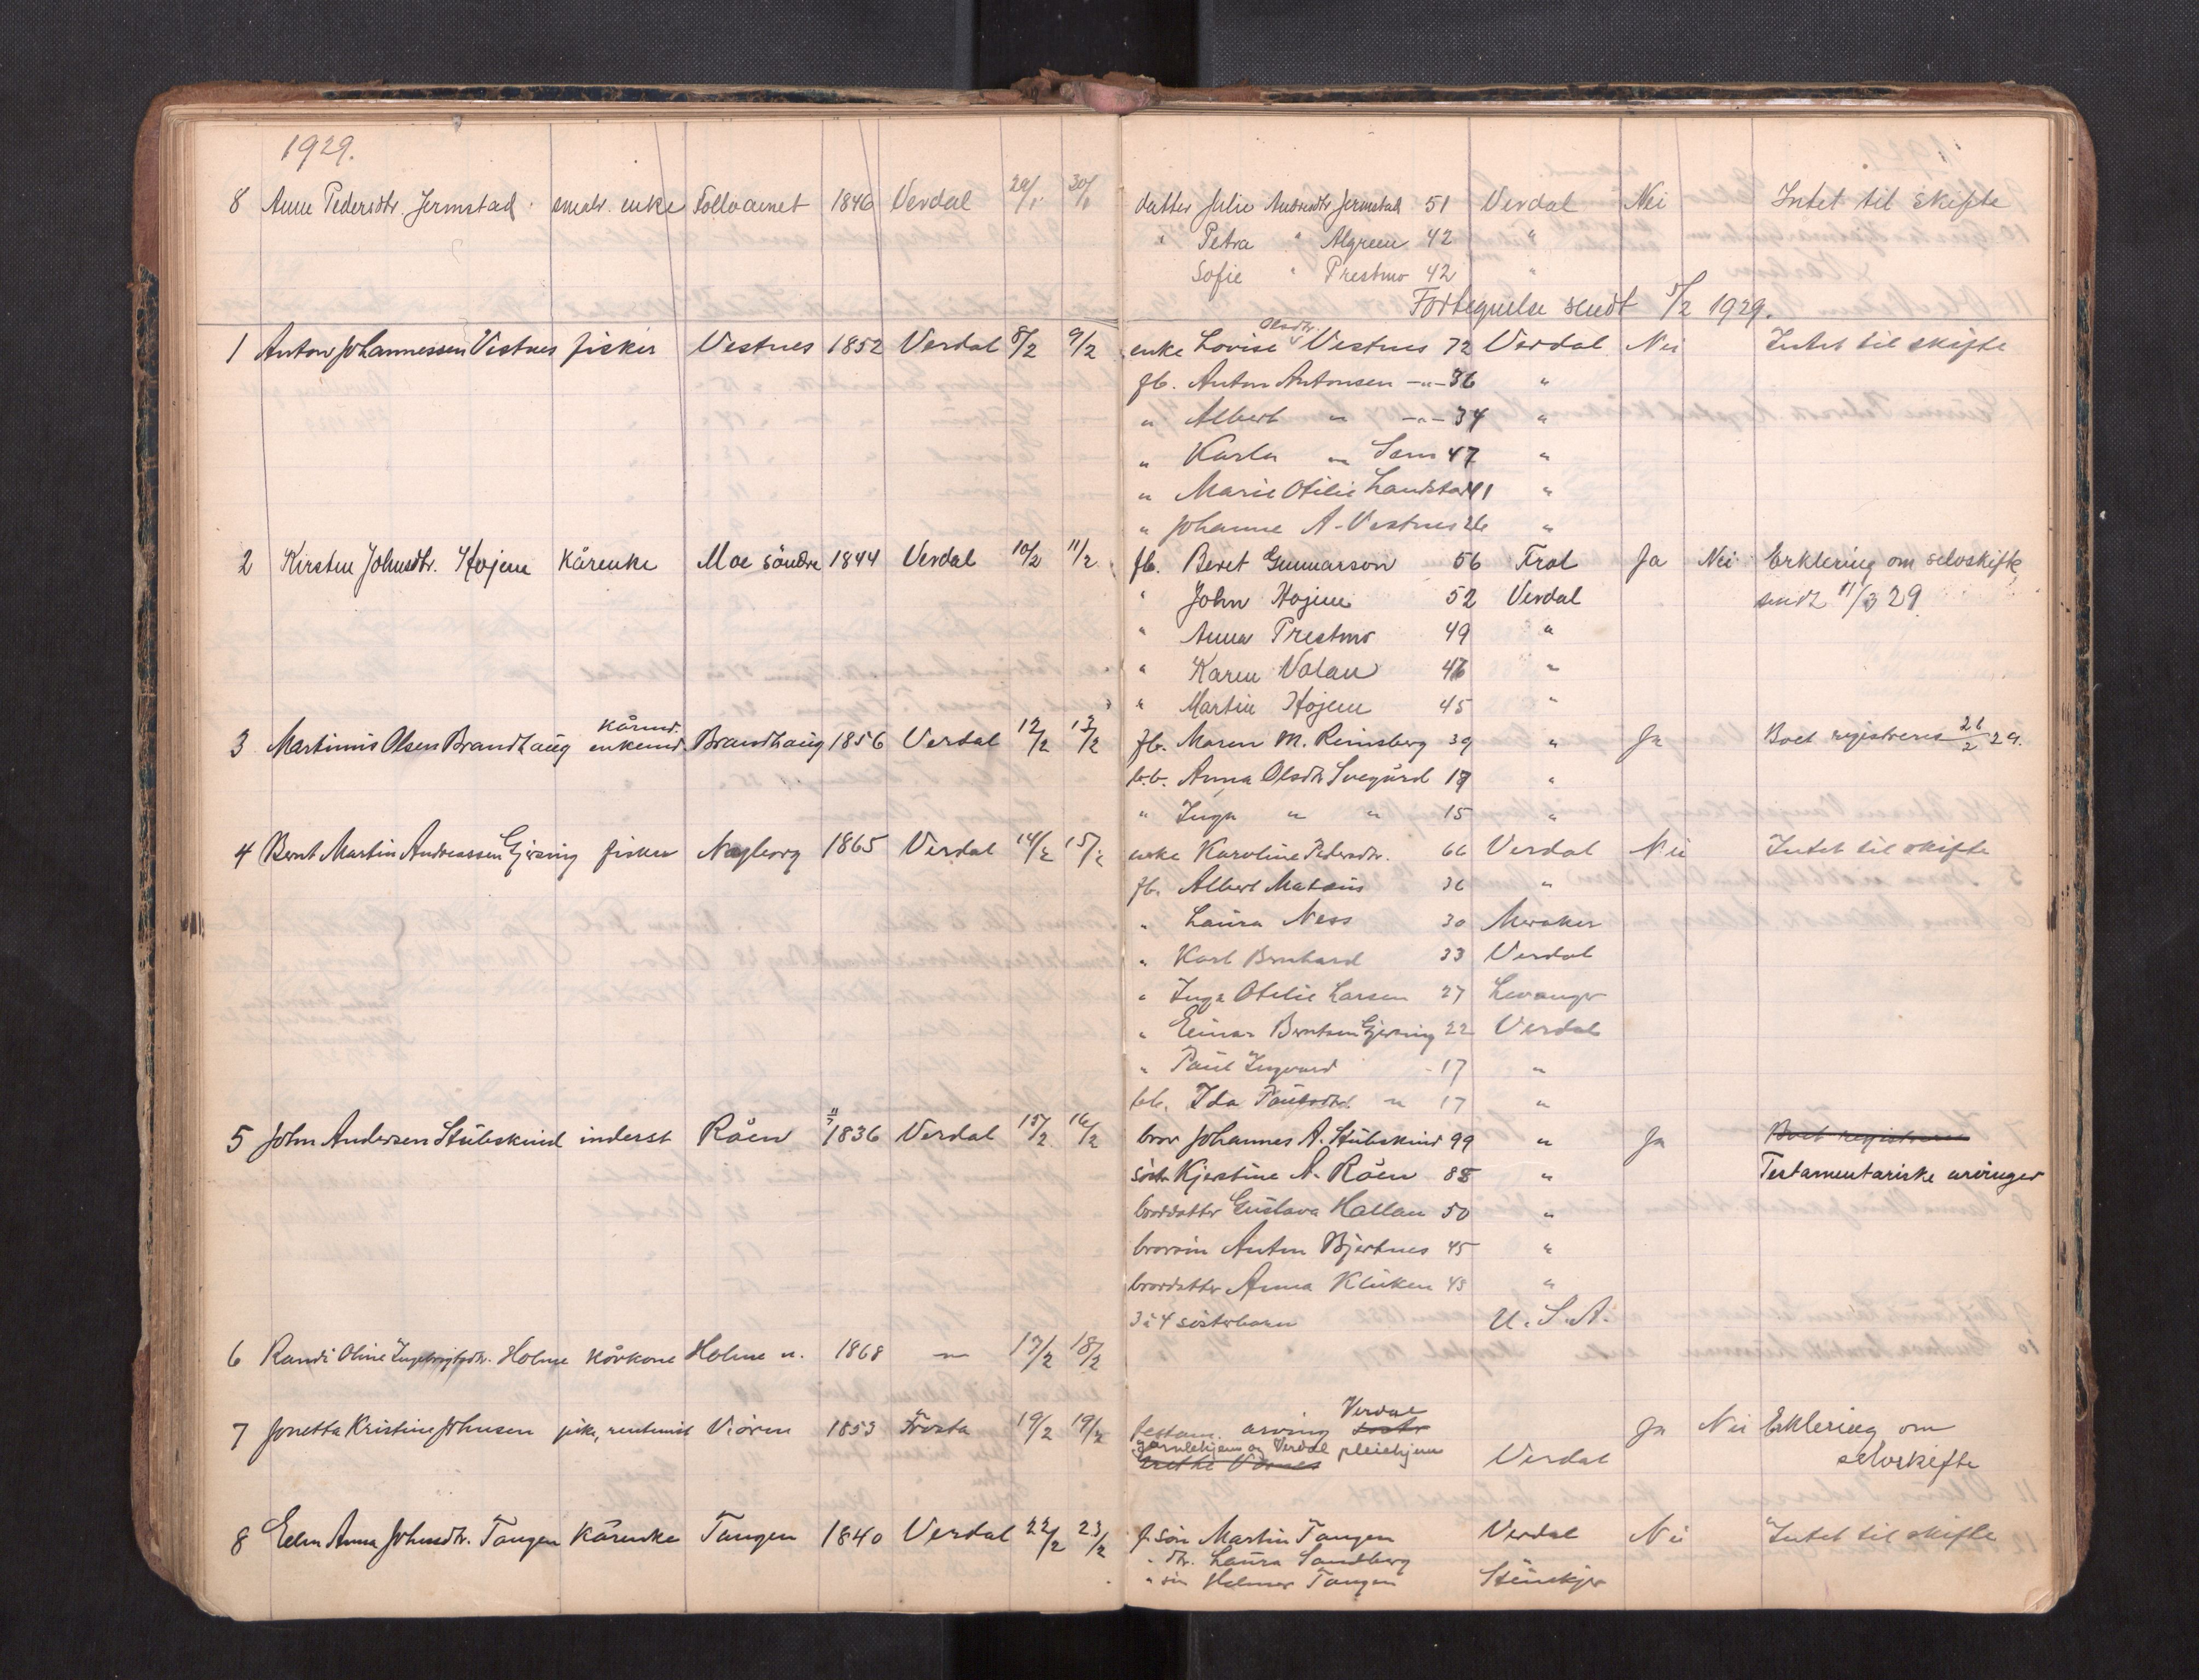 1929.
8 Anne Pedersdtr. Jermstad smabr. enke Tollvaemet 1846 Verdal 29/1 30/1 datter Julie Andreasdtr Jermstad 51 Verdal Nei Intet til skifte
" Petra " Algreen 42 "
Sofie " Prestmo 42 "
Fortegnelse sendt 5/2 1929.
1 Anton Johannessen Vestnes fisker Vestnes 1852 Verdal 8/2 9/2 enke Lovise Olsdtr. Vestnes 72 Verdal Nei Intet til skifte
fb. Anton Antonsen -"- 36 "
" Albert " -"- 34 "
" Karla " Sem 47 "
" Marie Otilie Landstad 41 "
" Johanne A. Vestnes 26 "
2 Kirsten Johnsdtr. Hojem Kårenke Moe söndre 1844 Verdal 10/2 11/2 fb. Beret Gunnarson 56 Frol Ja Nei Erklering om selvskifte
" John Hojem 52 Verdal sendt 11/3 29
" Anna Prestmo 49 "
" Karen Volan 46 "
" Martin Hojem 45 "
3 Martinus Olsen Brandhaug kårmd. enkemd. Brandhaug 1856 Verdal 12/2 13/2 fb. Maren M. Reinsberg 39 " Ja Boet registreres 26/2 29.
b.b. Anna Olsdtr Svegård 19 "
" Inga " " 15 "
4 Bernt Martin Andreassen Gjersing fisker Nagleorg 1865 Verdal 14/2 15/2 enke Karoline Pedersdtr. 66 Verdal Nei Intet til skifte
fb. Albert Mataus 36 "
" Laura Ness 30 Meraker
" Karl Bernhard 33 Verdal
" Inga Otilie Larsen 27 Levanger
" Einar Berntsen Gjersing 22 Verdal
" Paul Ingvard 17 "
bb. Ida Paulsdtr. " 17 "
5 John Andersen Stubskind inderst Råen 11/7 1836 Verdal 15/2 16/2 bror Johannes A. Stubskind 99 " Ja Boet registreres
söster Kjerstine A. Råen 88 " Testamentariske arvinger
brordatter Gustava Hallan 50 "
brorsön Anton Bjertnes 45 "
brordatter Anna Kluken 43 "
3 à 4 sösterbarn U.S.A.
6 Randi Oline Ingebrigtsdtr. Holme Kårkone Holme n. 1868 " 17/2 18/2
7 Jonetta Kristine Johnsen pike, rentenist Viören 1853 Frosta 19/2 19/2 testam. arving Verdal Ja Nei Erklering om
gamlehjem og Verdal pleiehjem Verdal selvskifte
8 Elen Anna Johnsdtr. Tangen Kårenke Tangen 1840 Verdal 22/2 23/2 f. sön Martin Tangen Verdal Nei Intet til skifte
" dtr. Laura Sandberg
" sön Helmer Tangen Stenkjer